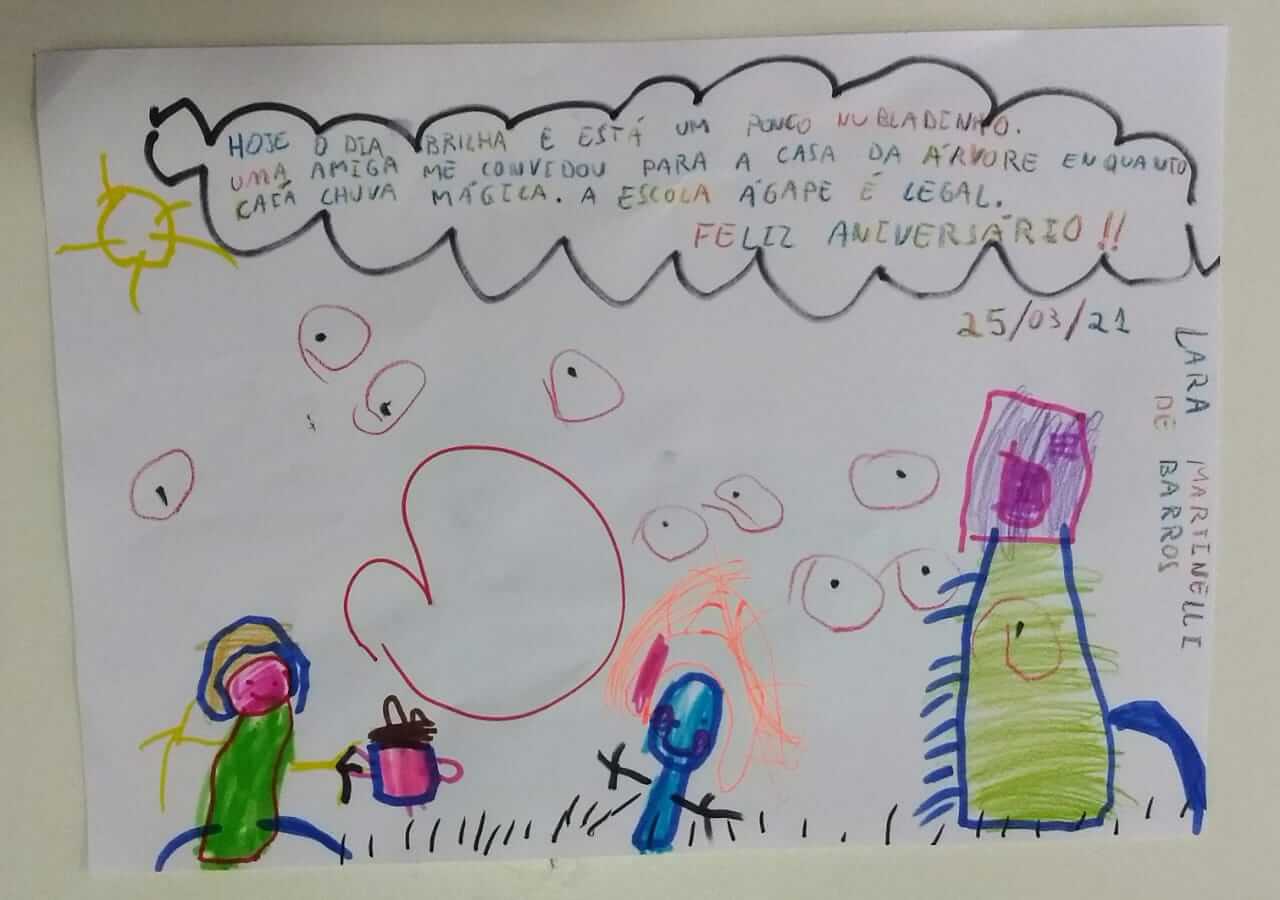 HOJE O DIA BRILHA E ESTÁ UM POUCO NUBLADINHO.
UMA AMIGA ME CONVIDOU PARA A CASA DA ÁRVORE ENQUANTO
CAÍA CHUVA MÁGICA. A ESCOLA ÁGAPE É LEGAL.
FELIZ ANIVERSÁRIO!!
25/03/21
LARA MARTINELLI
DE BARROS